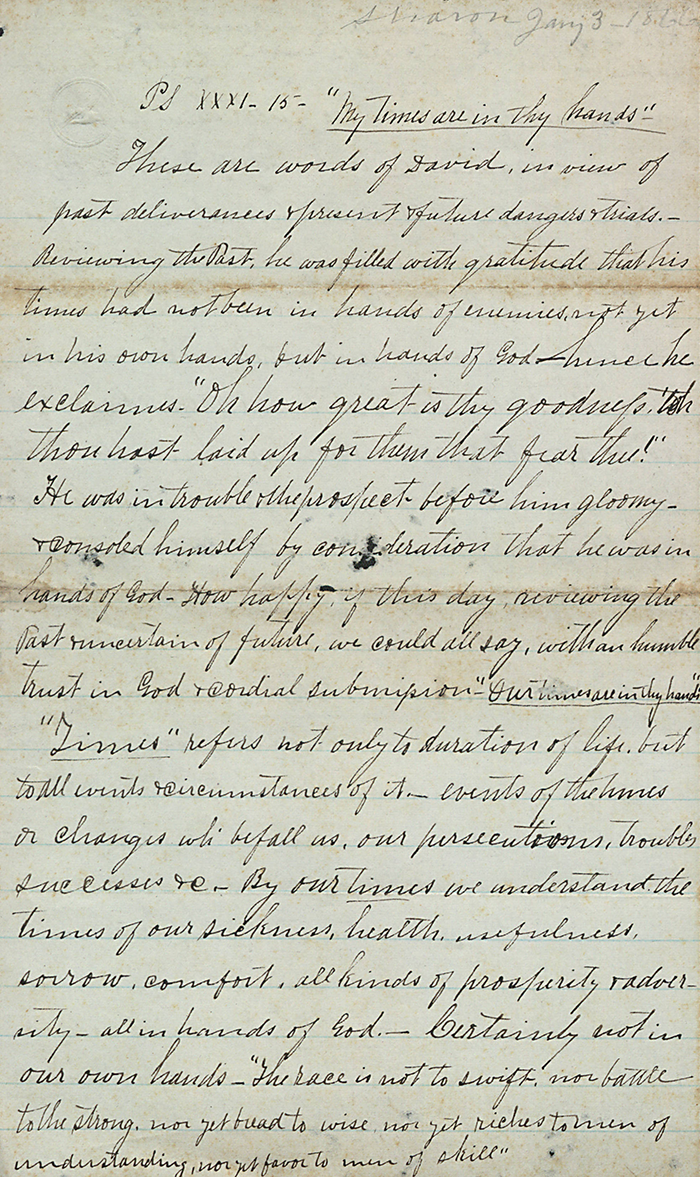 Sharon Jany 3 - 186
Ps XXXI - 15 - "My times are in thy hands"
These are words of David, in view of
past deliverances & present & future dangers & trials. -
Reviewing the Past, he was filled with gratitude that his
times had not been in hands of enemies, not yet
in his own hands, but in hands of God - hence he
exclaimes - "Oh how great is thy goodness, wh
thou hast laid up for them that fear thee!"
He was in trouble & the prospect before him gloomy -
& consoled himself by consideration that he was in
hands of God - How happy, if this day, reviewing the
Past & uncertain of future, we could all say, with an humble
trust in God & cordial submission - "Our times are in thy hands"
"Times" refers not only to duration of life, but
to all events & circumstances of it. - events of the times
or changes wh befall us, our persecutions, troubles
successes &c - By our times we understand the
times of our sickness, health, usefulness,
sorrow, comfort, all kinds of prosperity & adver-
sity - all in hands of God. - Certainly not in
our own hands - "The race is not to swift, nor battle
to the strong, nor yet bread to wise, nor yet riches to men of
understanding, nor yet favor to men of skill"